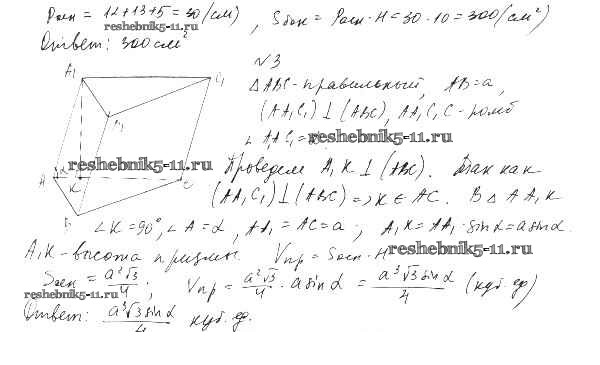 Pосн = 12+13+5=30 (см), Sбок = Pосн · H = 30 · 10 = 300 (см²)
reshebnik5-11.ru
Ответ: 300 см²
№3
A₁ C₁
△ABC - правильный, AB = a,
B₁
(AA₁C₁) ⊥ (ABC), AA₁C₁C - ромб
∠ A
reshebnik5-11.ru
reshebnik5-11.ru
A α K C
Проведем A₁K ⊥ (ABC). Так как
(AA₁C₁) ⊥ (ABC) => K ∈ AC. В △ AA₁K
B
∠K = 90°, ∠A = α, AA₁ = AC = a; A₁K = AA₁ · sin α = a sin α.
A₁K - высота призмы. Vпр = Sосн · H
reshebnik5-11.ru
Sосн = a²√3/4; Vпр = a²√3/4 · a sin α = a³√3 sin α/4 (куб. ед)
reshebnik5-11.ru
Ответ: a³√3 sin α/4 куб. ед.